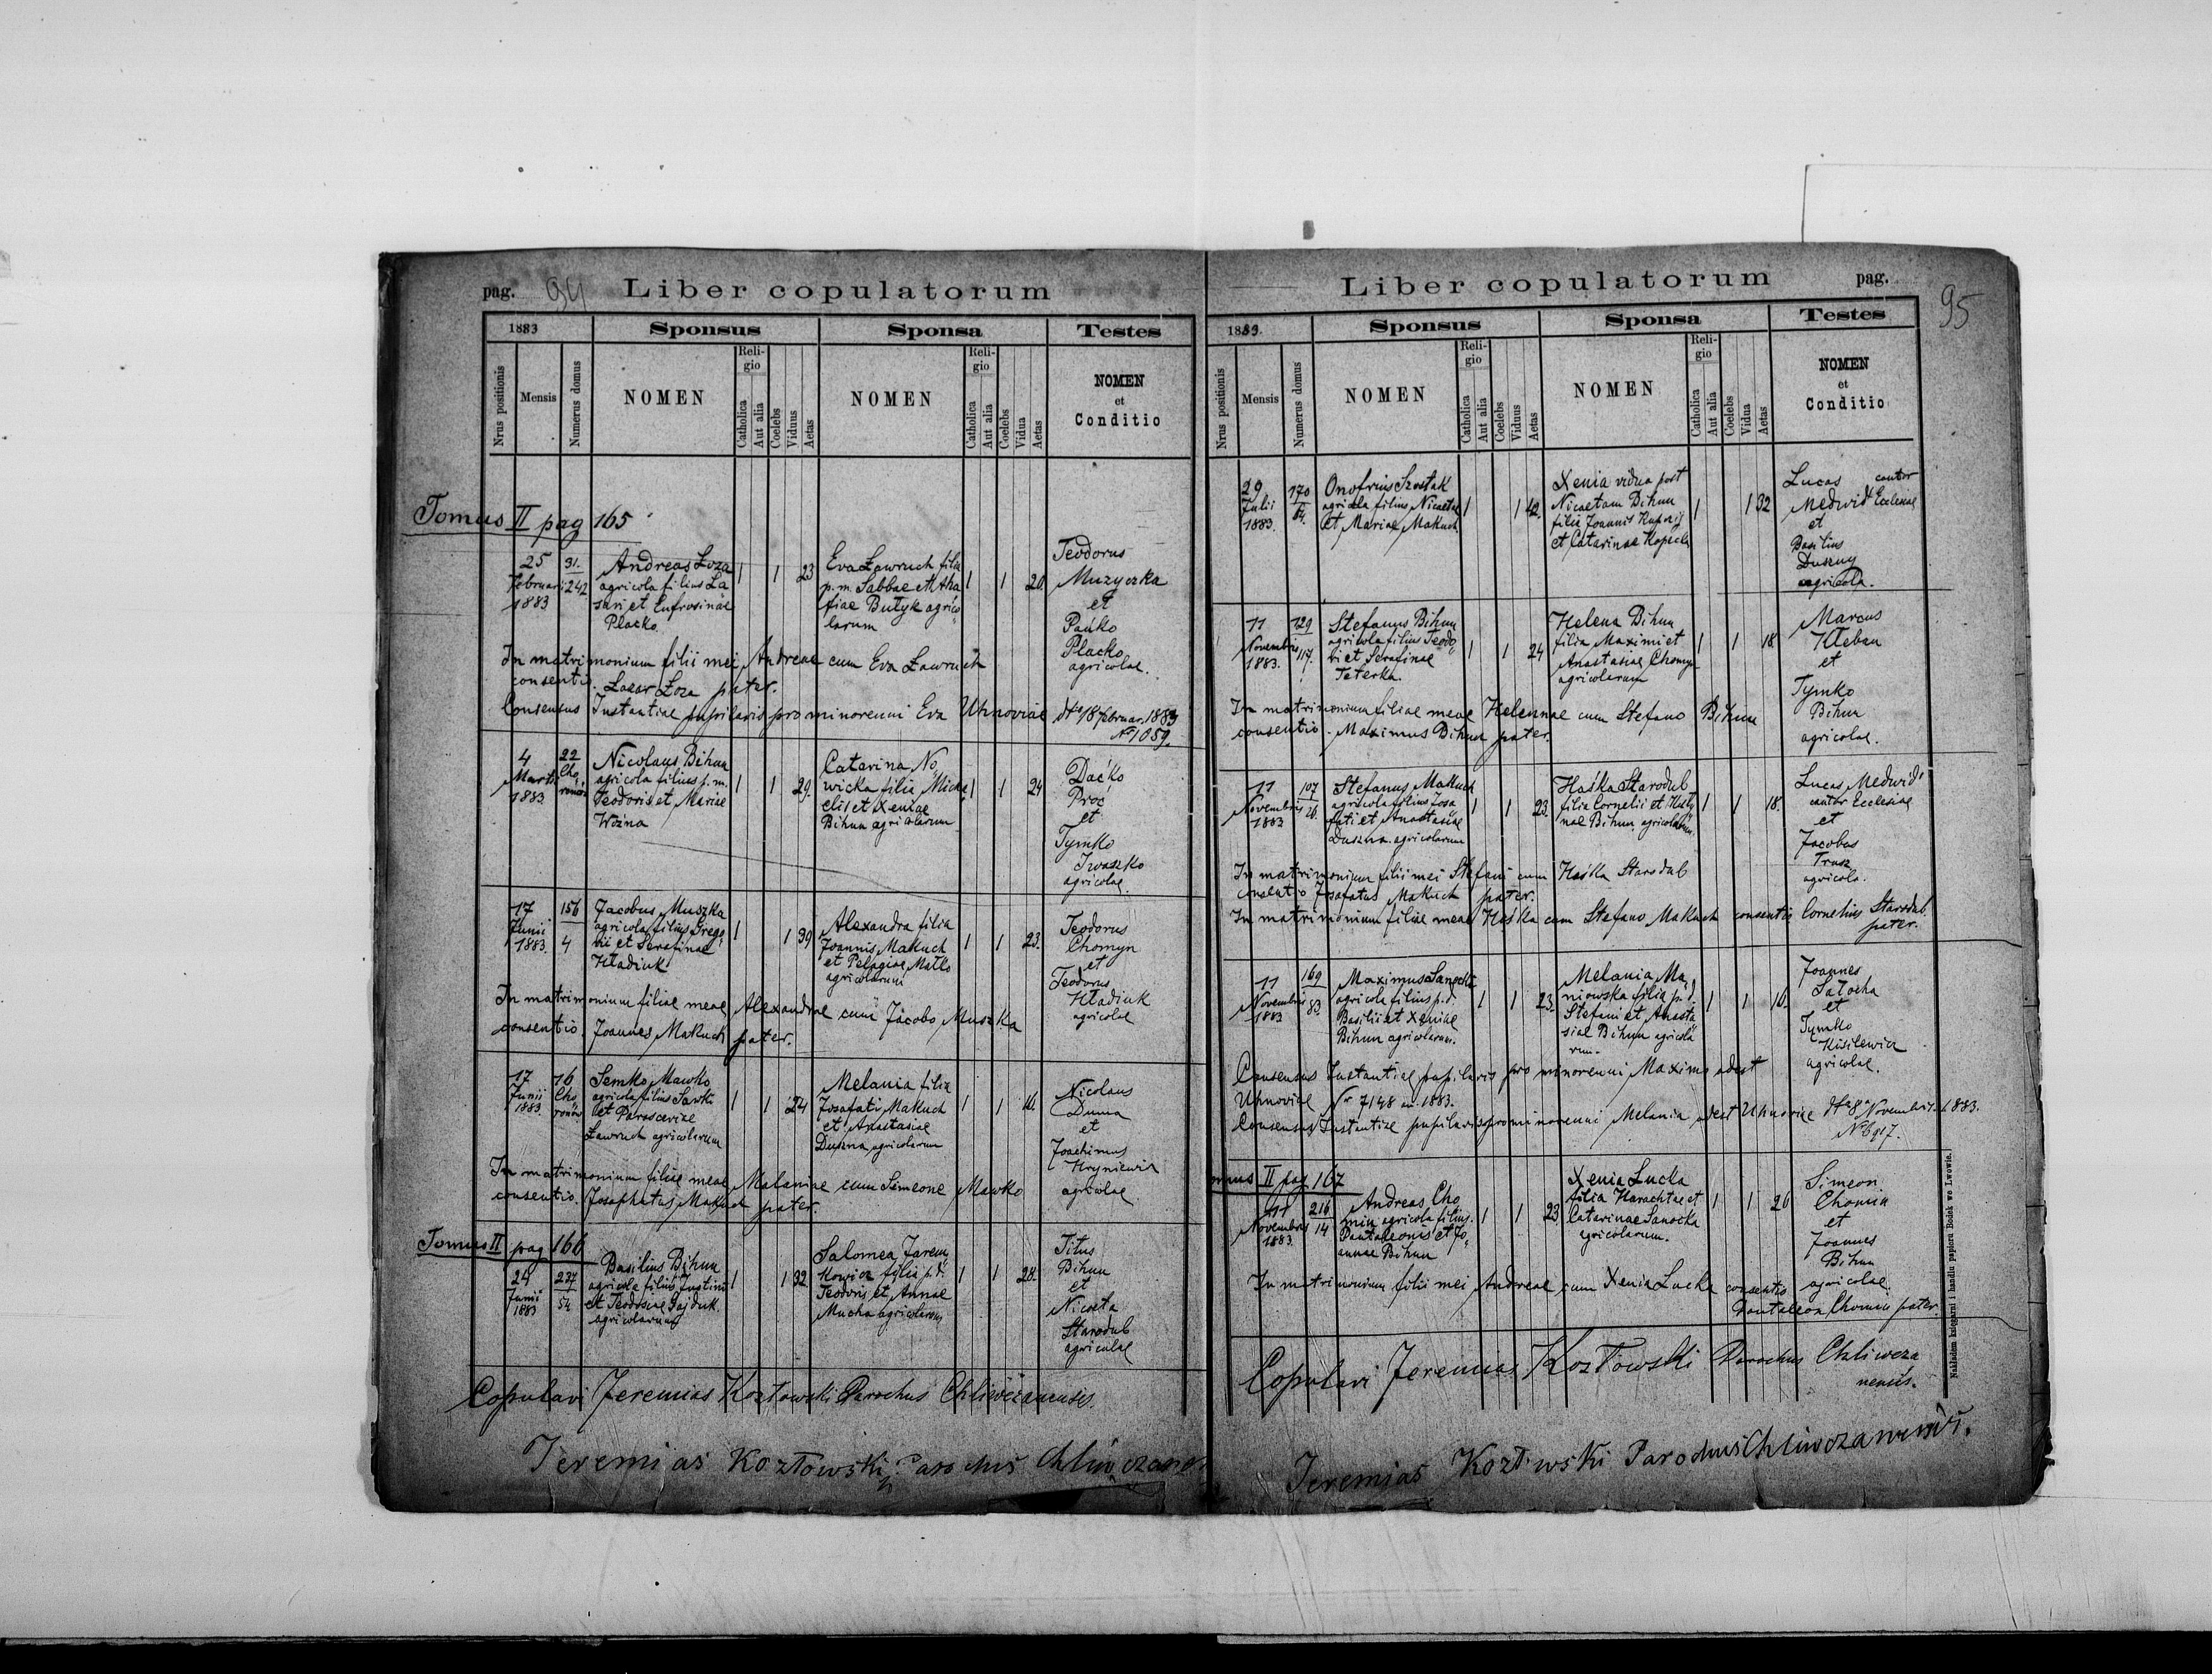 pag. 94 Liber copulatorum
1883 Sponsus Sponsa Testes
Nrus positionis Mensis Numerus domus NOMEN Religio Catholica Aut alia Coelebs Viduus Aetas NOMEN Religio Catholica Aut alia Coelebs Vidua Aetas NOMEN et Conditio
Tomus II pag 165
25
Februarii
1883
31.
242
Andreas Łoza
agricola filius La
sari et Eufrosinae
Placko
1 1 23
Eva Ławruch filia
p.m. Sabbae et Atha
fiae Butyk agrico
larum
1 1 20.
Teodorus
Muzyczka
et
Pańko
Placko
agricolae.
In matrimonium filii mei Andreae cum Eva Ławruch
consentio. Lazar Łoza pater.
Consensus Instantiae pupilaris pro minorenni Eva Uhnoviae dto 18 februar. 1883
No 1059.
4
Martii
1883
22
Cho
ronów
Nicolaus Bihun
agricola filius p.m.
Teodoris et Mariae
Woźna
1 1 29.
Catarina No
wicka filia Micha
elis et Xeniae
Bihun agricolarum
1 1 24
Daćko
Proć
et
Tymko
Iwaszko
agricolae.
17
Junii
1883.
156
4
Jacobus Muszka
agricola filius Grego
rii et Serafinae
Kładiuk
1 1 39
Alexandra filia
Joannis Makuch
et Pelagiae Małko
agricolarum
1 1 23.
Teodorus
Chomyn
et
Teodorus
Kładiuk
agricolae
In matrimonium filiae meae Alexandrae cum Jacobo Muszka
consentio. Joannes Makuch pater.
17
Junii
1883.
16
Cho
ronów
Semko Mawko
agricola filius Sawki
et Parasceviae
Ławruch agricolarum
1 1 24
Melania filia
Josafati Makuch
et Anastasiae
Duszna agricolarum
1 1 16.
Nicolaus
Duma
et
Joachimus
Hryniewicz
agricolae
In matrimonium filiae meae Melaniae cum Simeone Mawko
consentio. Josaphatus Makuch pater.
Tomus II pag 166
24
Junii
1883
237
54
Basilius Bihun
agricola filius Justini
et Teodosiae Gajduk
agricolarum
1 1 32
Salomea Jarem
kowicz filia p.d.
Teodoris et Annae
Mucha agricolarum
1 1 28.
Titus
Bihun
et
Niceta
Starodub
agricolae
Copulavi Jeremias Kozłowski Parochus Chliwczanensis.
Jeremias Kozłowski Parochus Chliwczanen
Liber copulatorum pag. 95
1883. Sponsus Sponsa Testes
Nrus positionis Mensis Numerus domus NOMEN Religio Catholica Aut alia Coelebs Viduus Aetas NOMEN Religio Catholica Aut alia Coelebs Vidua Aetas NOMEN et Conditio
29
Julii
1883.
170
64.
Onofrius Szostak
agricola filius Nicaetae
et Mariae Makuch
1 1 42.
Xenia vidua post
Nicaetam Bihun
filia Joannis
et Catarinae
1 1 32
Lucas cantor
Medwid Ecclesiae
et
Basilius
Duszny
agricola.
11
Novembris
1883.
129
117.
Stefanus Bihun
agricola filius Teodo
ri et Serafinae
Teterka.
1 1 24
Helena Bihun
filia Maximi et
Anastasiae Chomyn
agricolarum
1 1 18.
Marcus
Kleban
et
Tymko
Bihun
agricolae.
In matrimonium filiae meae Helennae cum Stefano Bihun
consentio. Maximus Bihun pater.
11
Novembris
1883
107
26.
Stefanus Makuch
agricola filius Josa
fati et Anastasiae
Duszna agricolarum
1 1 23.
Haśka Starodub
filia Cornelii et Justy
nae Bihun agricolarum.
1 1 18.
Lucas Medwid
cantor Ecclesiae
et
Jacobus
Trusz
agricola.
In matrimonium filii mei Stefani cum Haśka Starodub
consentio Josafatus Makuch pater.
In matrimonium filiae meae Haśka cum Stefano Makuch consentio Cornelius Starodub.
pater.
11
Novembris
1883
169
83.
Maximus Sanocki
agricola filius p.d.
Basilii et Xeniae
Bihun agricolarum.
1 1 23.
Melania Ma
niowska filia p.d.
Stefani et Anasta
siae Bihun agricola
rum.
1 1 16.
Joannes
Sałocha
et
Tymko
Kisilewicz
agricolae.
Consensus Instantiae pupilaris pro minorenni Maximo adest
Uhnoviae Nr 7148 ai 1883.
Consensus Instantiae pupilaris pro minorenni Melania adest Uhnoviae dto 8 Novembris 1883.
No 6917.
Tomus II pag. 167
11
Novembris
1883.
216
14
Andreas Cho
min agricola filius
Pantaleonis et Jo
annae Bihun
1 1 23
Xenia Lucka
filia Harachtae et
Catarinae Sanocka
agricolarum.
1 1 26
Simeon
Chomin
et
Joannes
Bihun
agricolae
In matrimonium filii mei Andreae cum Xenia Lucka consentio
Pantaleon Chomin pater.
Copulavi Jeremias Kozłowski Parochus Chliwcza
nensis.
Jeremias Kozłowski Parochus Chliwczanensis.
Nakładem księgarni i handlu papieru Bodek we Lwowie.